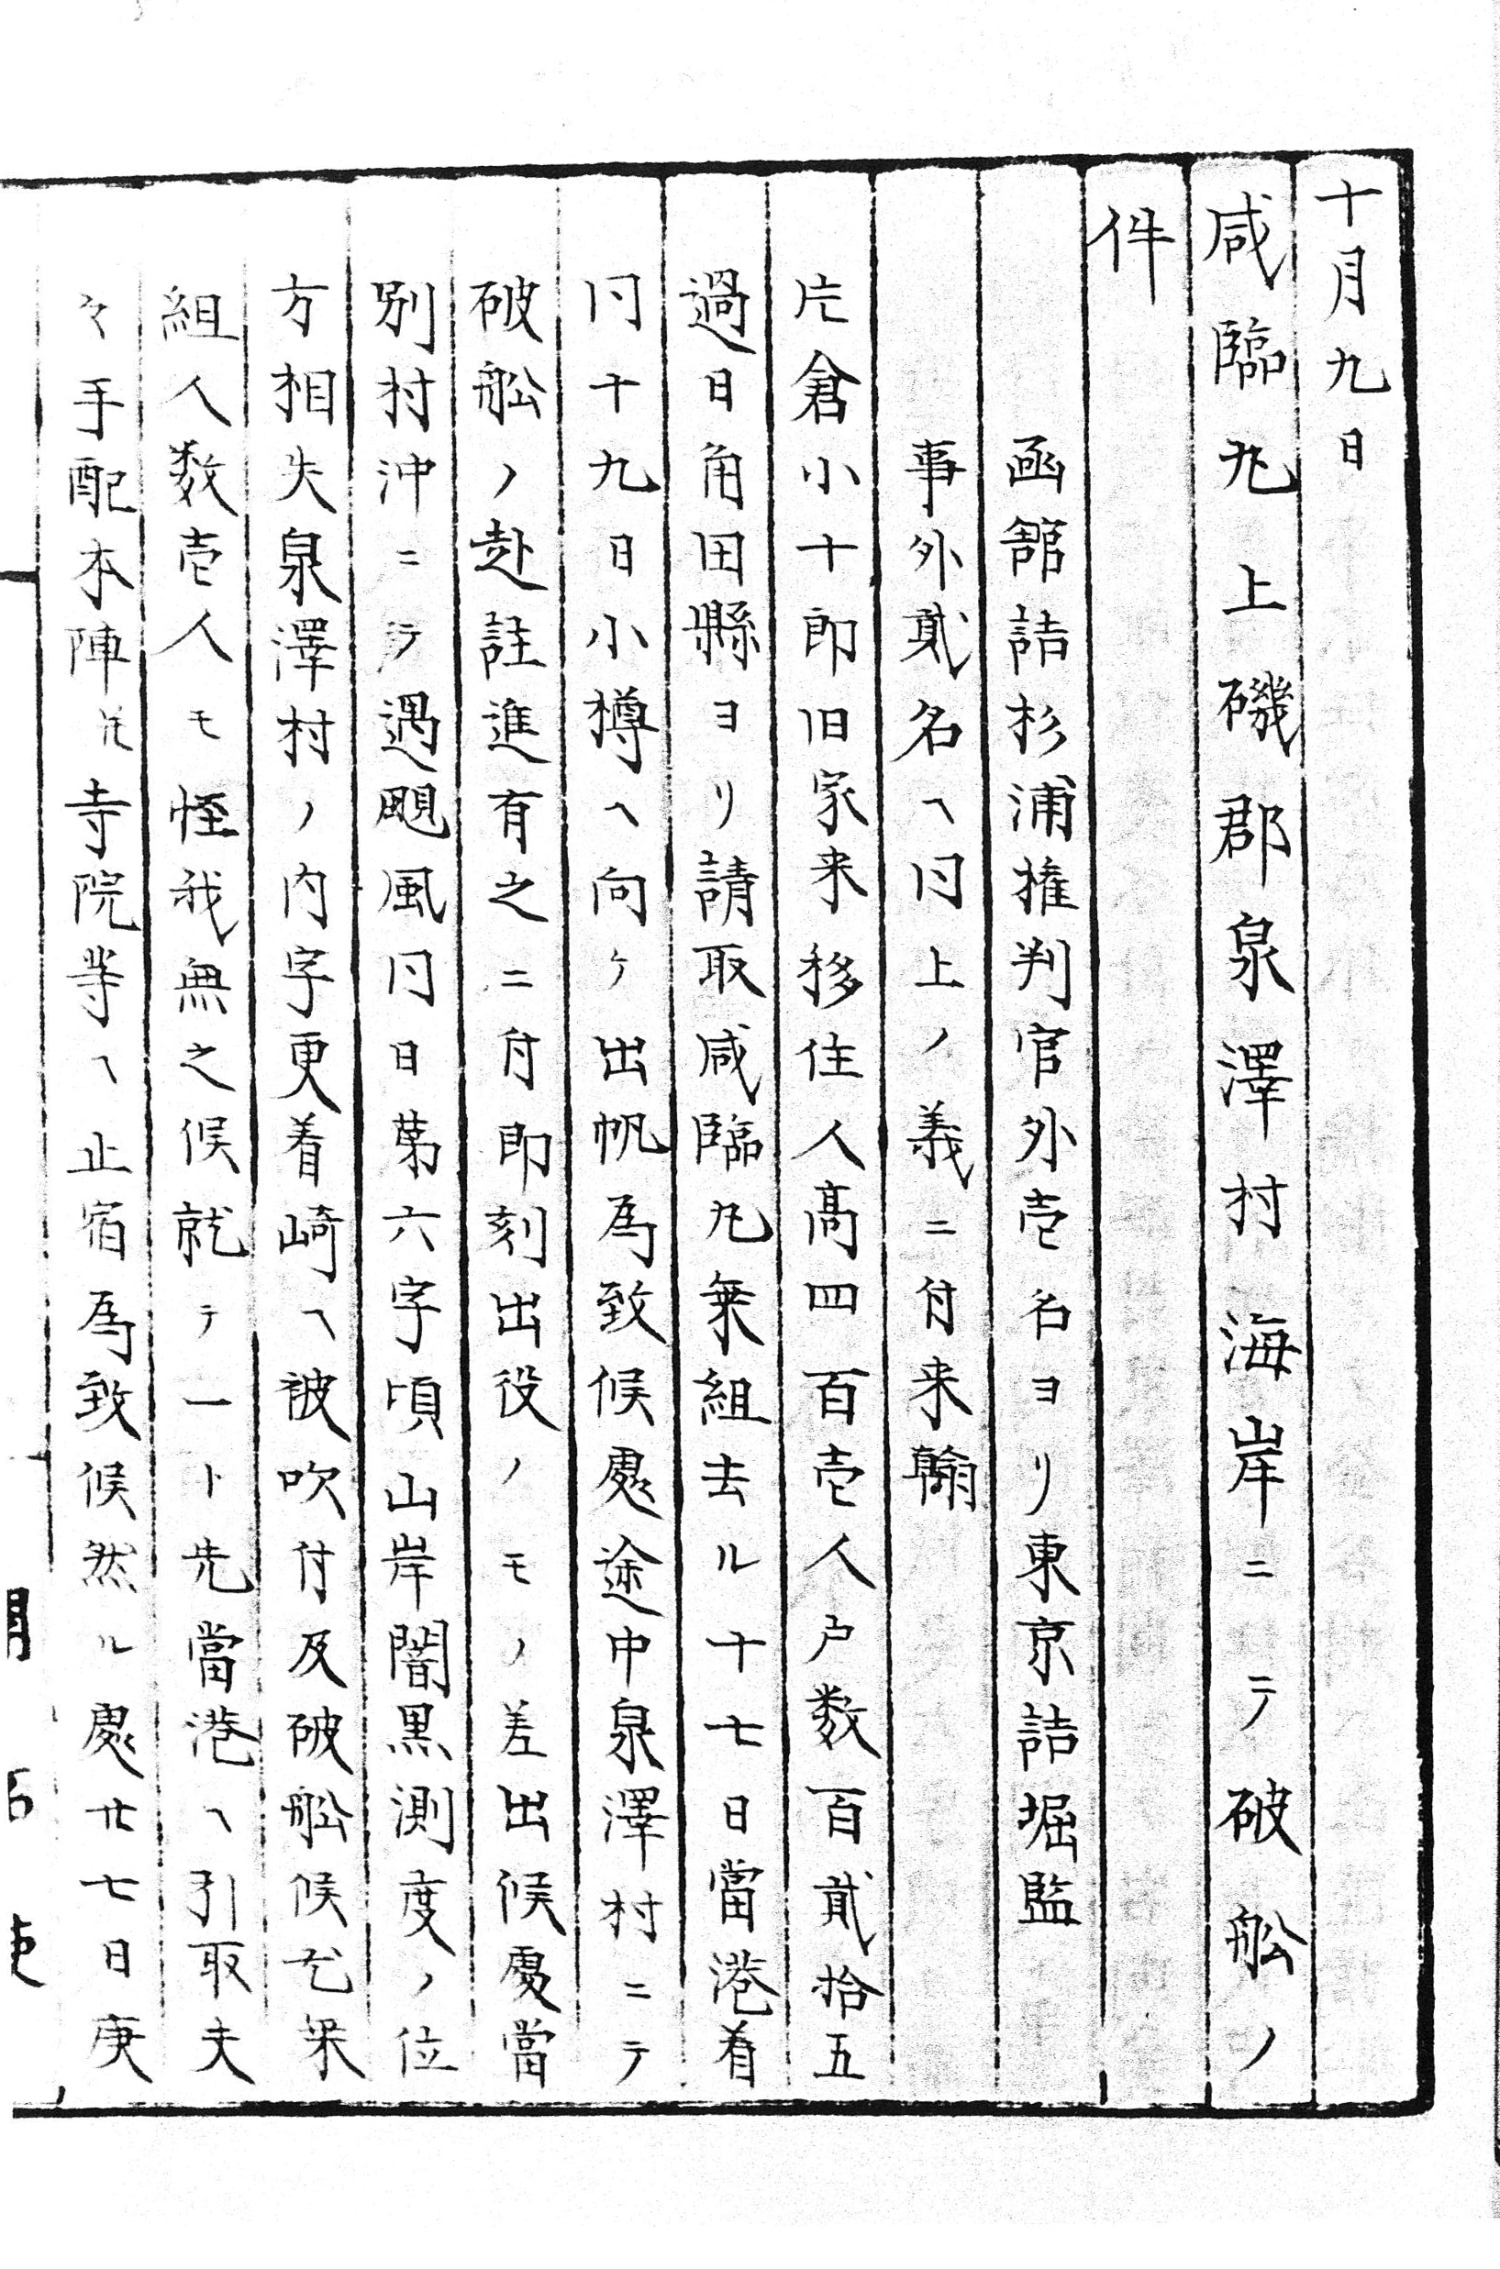 十月九日
咸臨丸上磯郡泉澤村海岸ニテ破舩ノ
件
函舘詰杉浦権判官外壱名ヨリ東京詰堀監
事外貳名ヘ同上ノ義ニ付来翰
片倉小十郎旧家来移住人髙四百壱人戸数百貳拾五
過日角田縣ヨリ請取咸臨丸乗組去ル十七日當港着
同十九日小樽ヘ向ケ出帆為致候處途中泉澤村ニテ
破舩ノ赴註進有之ニ付即刻出役ノモノ差出候處當
別村沖ニテ遇颶風同日第六字頃山岸闇黒測度ノ位
方相失泉澤村ノ内字更着崎ヘ被吹付及破舩候尤乗
組人数壱人モ怪我無之候就テ一ト先當港ヘ引取夫
々手配本陣并寺院等ヘ止宿為致候然ル處廿七日庚